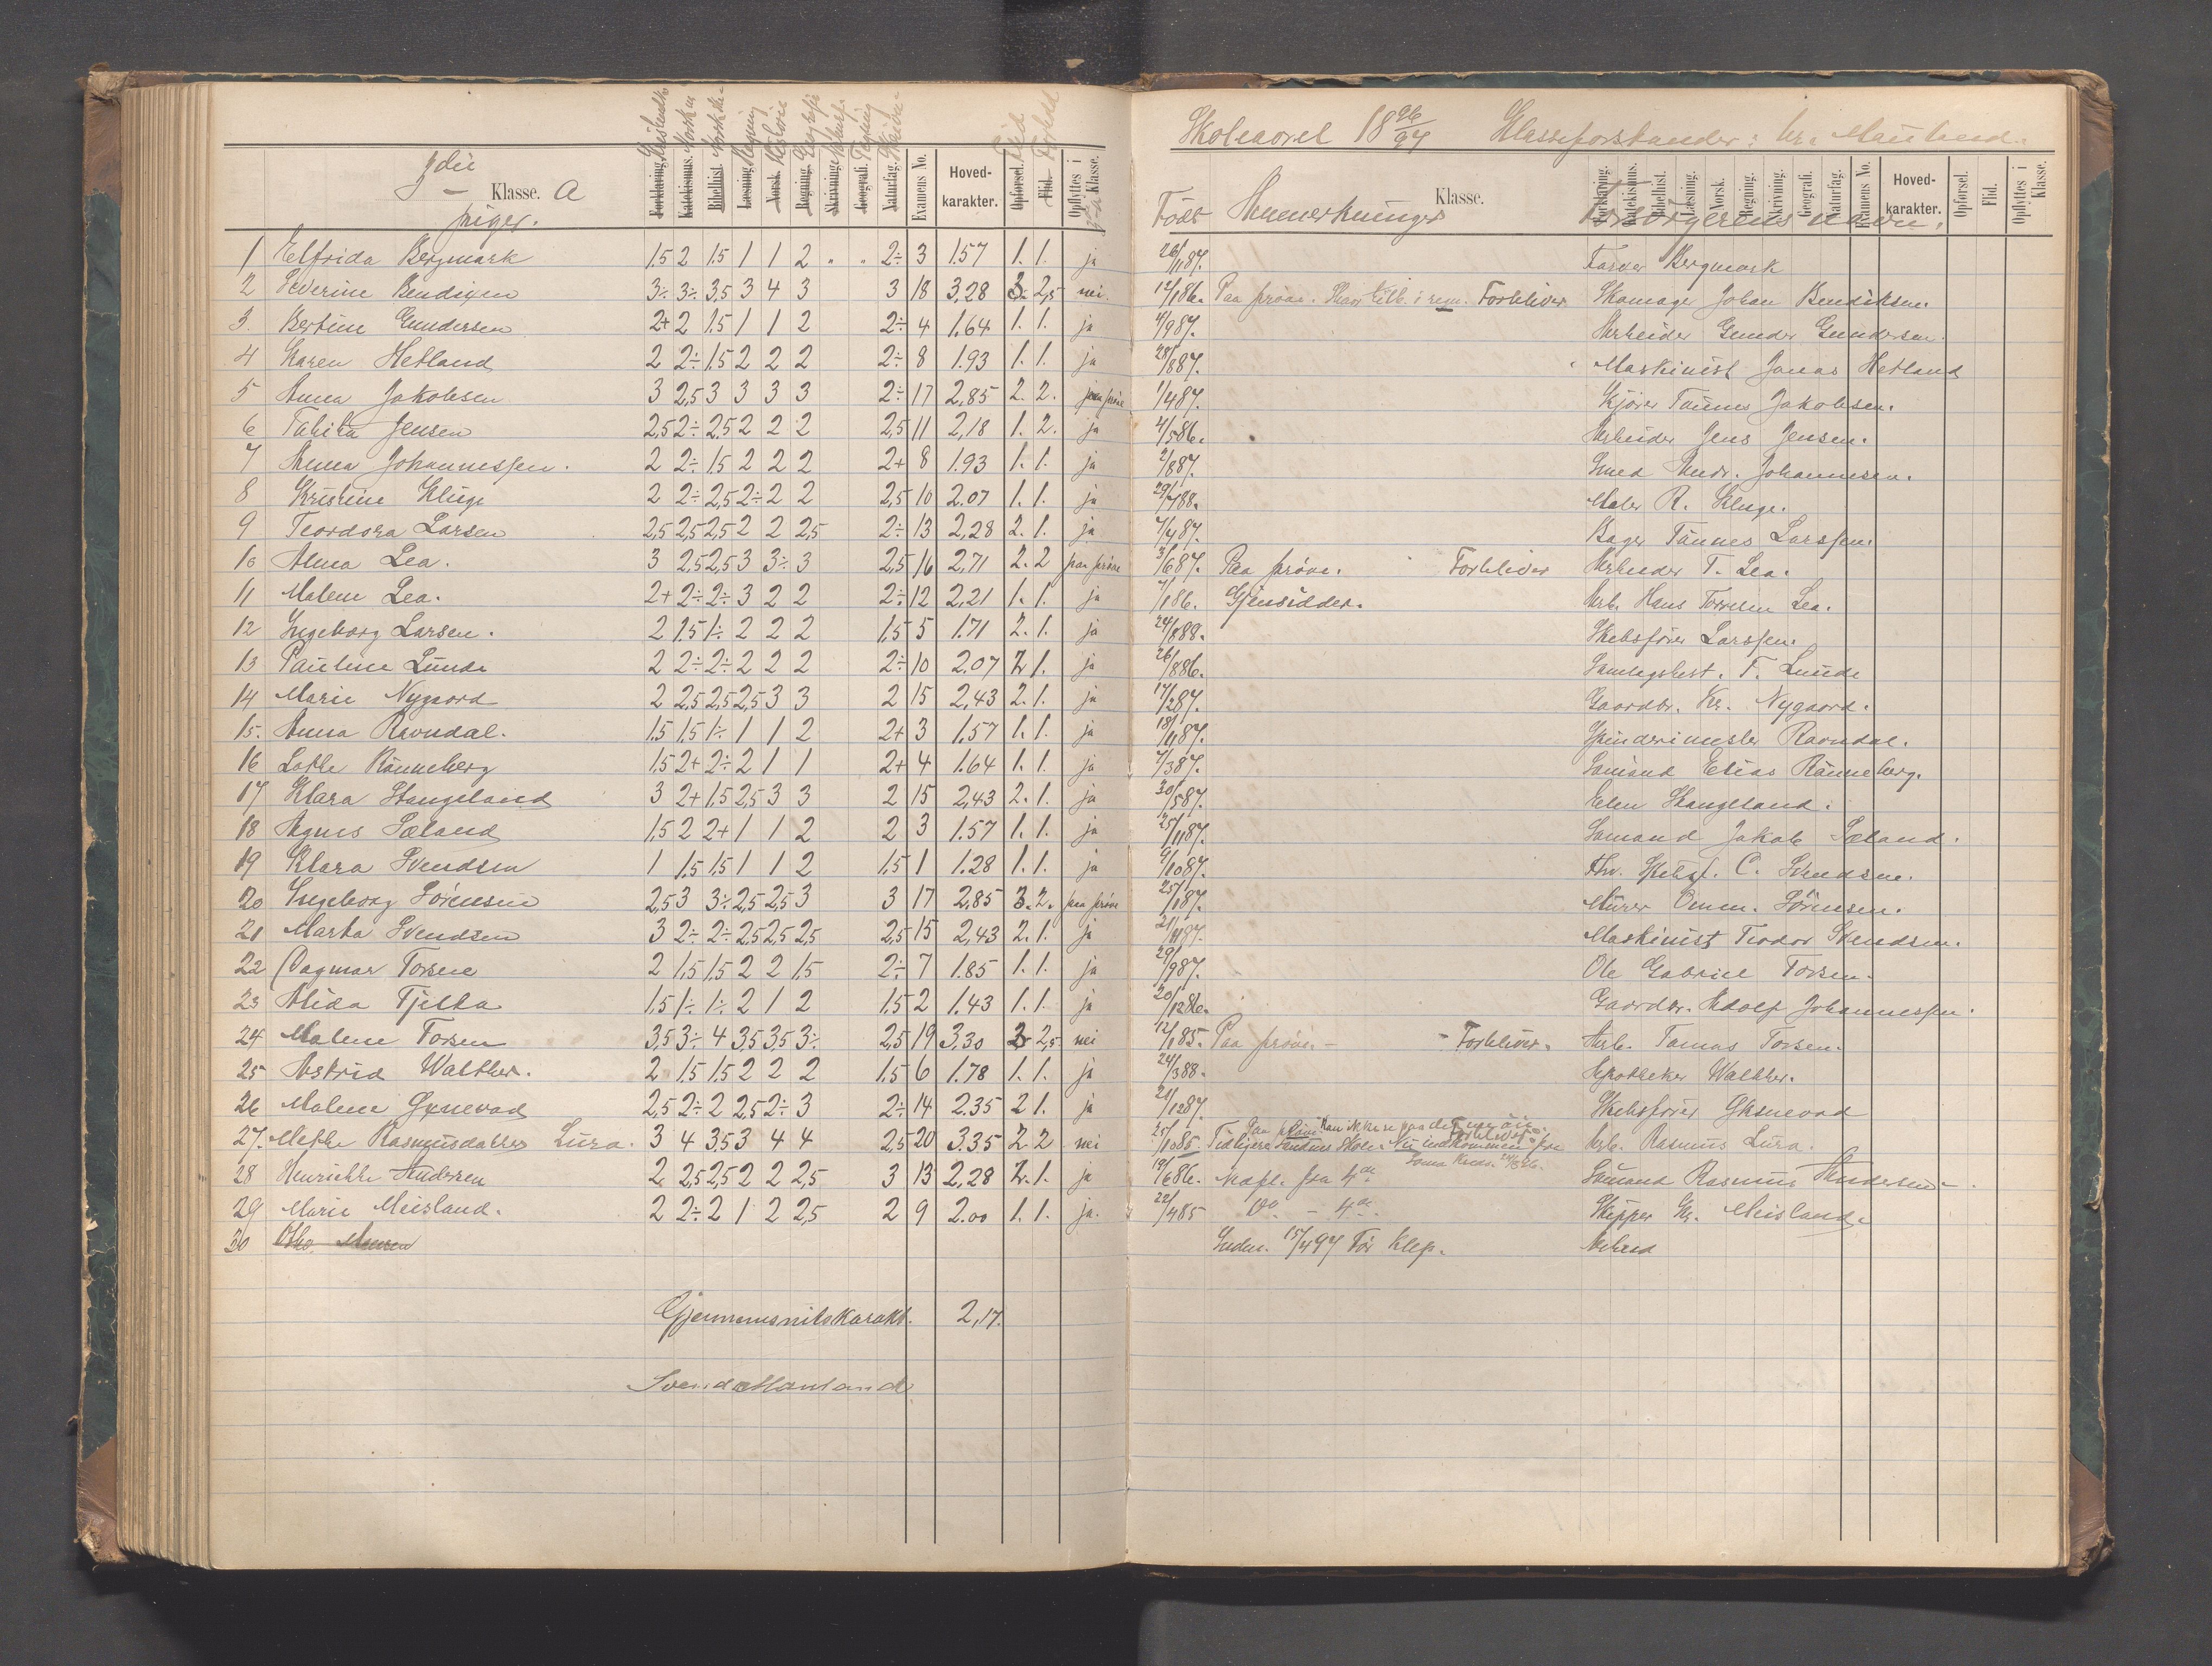 3die
— Klasse. A
piger.
Forklaring. Katekismus. Bibelhist. Læsning. Norsk. Regning. Skrivning. Geografi. Naturfag. Examens No. Hoved-karakter. Opførsel. Flid. Opflyttes i Klasse.
1 Elfrida Bergmark 1.5 2 1.5 1 1 2 " " 2÷ 3 1.57 1. 1. ja
2 Severine Bendixen 3÷ 3÷ 3,5 3 4 3 3 18 3,28 3. 2,5 nei.
3. Bertine Gundersen 2+ 2 1.5 1 1 2 2÷ 4 1.64 1. 1. ja
4 Karen Hetland 2 2÷ 1.5 2 2 2 2÷ 8 1.93 1. 1. ja
5 Anna Jakobsen 3 2,5 3 3 3 3 2÷ 17 2,85 2. 2. paa prøve
6 Tabita Jensen 2,5 2÷ 2,5 2 2 2 2,5 11 2,18 1. 2. ja
7 Anna Johannessen. 2 2÷ 1.5 2 2 2 2+ 8 1.93 1. 1. ja
8 Kristine Kluge 2 2÷ 2,5 2÷ 2 2 2,5 10 2.07 1. 1. ja
9 Teordora Larsen 2,5 2,5 2,5 2 2 2,5 2÷ 13 2,28 2. 1. ja
10 Anna Lea. 3 2,5 2,5 3 3÷ 3 2,5 16 2,71 2. 2 paa prøve
11 Malene Lea. 2+ 2÷ 2÷ 3 2 2 2÷ 12 2,21 1. 1. ja
12 Ingeborg Larsen. 2 1.5 1÷ 2 2 2 1,5 5 1.71 2. 1. ja
13 Pauline Lunde 2 2÷ 2÷ 2 2 2 2÷ 10 2.07 2 1. ja
14 Marie Nygaard 2 2,5 2,5 2,5 3 3 2 15 2,43 2. 1. ja
15. Anna Ravndal. 1.5 1.5 1÷ 1 1 2 2+ 3 1.57 1. 1. ja
16 Lotte Rønneberg 1.5 2+ 2÷ 2 1 1 2+ 4 1.64 1. 1. ja
17 Klara Stangeland 3 2+ 1,5 2,5 3 3 2 15 2,43 2. 1. ja
18 Agnes Sæland 1,5 2 2+ 1 1 2 2 3 1.57 1. 1. ja
19 Klara Svendsen 1 1.5 1.5 1 1 2 1.5 1 1.28 1. 1. ja
20 Ingeborg Sörensen 2,5 3 3÷ 2,5 2,5 3 3 17 2,85 3. 2. paa prøve
21 Marta Svendsen 3 2÷ 2÷ 2,5 2,5 2,5 2,5 15 2,43 2. 1. ja
22 Dagmar Torsen 2 1,5 1,5 2 2 1.5 2÷ 7 1.85 1. 1. ja
23 Alida Tjelta 1.5 1÷ 1÷ 2 1 2 1.5 2 1.43 1. 1. ja
24 Malene Torsen 3,5 3÷ 4 3,5 3,5 3÷ 2,5 19 3,30 3 2,5 nei
25 Astrid Walther. 2 1.5 1.5 2 2 2 1.5 6 1.78 1. 1. ja
26 Malene Gxnevad 2,5 2÷ 2 2,5 2÷ 3 2÷ 14 2.35 2 1. ja
27. Mette Rasmusdatter Lura. 3 4 3,5 3 4 4 2,5 20 3.35 2 2 nei
28 Henriette Andersen 2 2,5 2,5 2 2 2,5 3 13 2,28 2. 1. ja
29 Marie Meisland. 2 2÷ 2 1 2 2,5 2 9 2.00 1. 1. ja.
30
Gjennemsnitskarakt. 2,17.
Svend Mauland
Skoleaaret 1896/97 Klasseforstander: hr. Mauland.
Født Anmerkninger Klasse. Forsørgerens navn.
Forklaring. Katekismus. Bibelhist. Læsning. Norsk. Regning. Skrivning. Geografi. Naturfag. Examens No. Hoved-karakter. Opførsel. Flid. Opflyttes i Klasse.
26/11 87. Farver Bergmark
12/1 86. Paa prøve. Forbliver Skomager Johan Bendiksen.
4/9 87. Arbeider Gunder Gundersen.
28/8 87. Maskinist Jonas Hetland
1/4 87. Kjører Tønnes Jakobsen.
4/5 86. Arbeider Jens Jensen.
2/8 87. Smed Andr. Johannesen.
29/7 88. Maler R. Kluge.
7/4 87. Bager Tønnes Larssen.
3/6 87. Paa prøve. Forbliver Arbeider T. Lea.
7/1 86. Gjensidder. Arb. Hans Torresen Lea.
24/8 88. Skibsfører Larssen.
26/8 86. Samlagsbest. T. Lunde
17/2 87. Gaardbr. Kr. Nygaard.
18/11 87. Spinderimester Ravndal.
7/3 87. Sømand Elias Rønneberg.
30/5 87. Elen Stangeland.
25/11 87. Sømand Jakob Sæland.
9/10 87. C. Svendsen.
25/1 87. Murer Omm. Sörensen.
21/11 87. Maskinist Teodor Svendsen.
29/9 87. Ole Gabriel Torsen.
20/12 86. Gaardbr. Adolf Johannessen.
12/1 85. Paa prøve. — Forbliver. Arb. Tomas Torsen.
24/3 88. Apotheker Walther.
21/12 87. Skibsfører Gksnevad
25/10 85 Tidligere Skole. Nu indkommen fra Arb. Rasmus Lura.
19/6 86. Nedfl. fra 4de Sømand Rasmus Andersen.
22/4 85 Do. — 4de. Skipper Kr. Meisland.
Indm. 15/4 97 For Klep. Arbeid